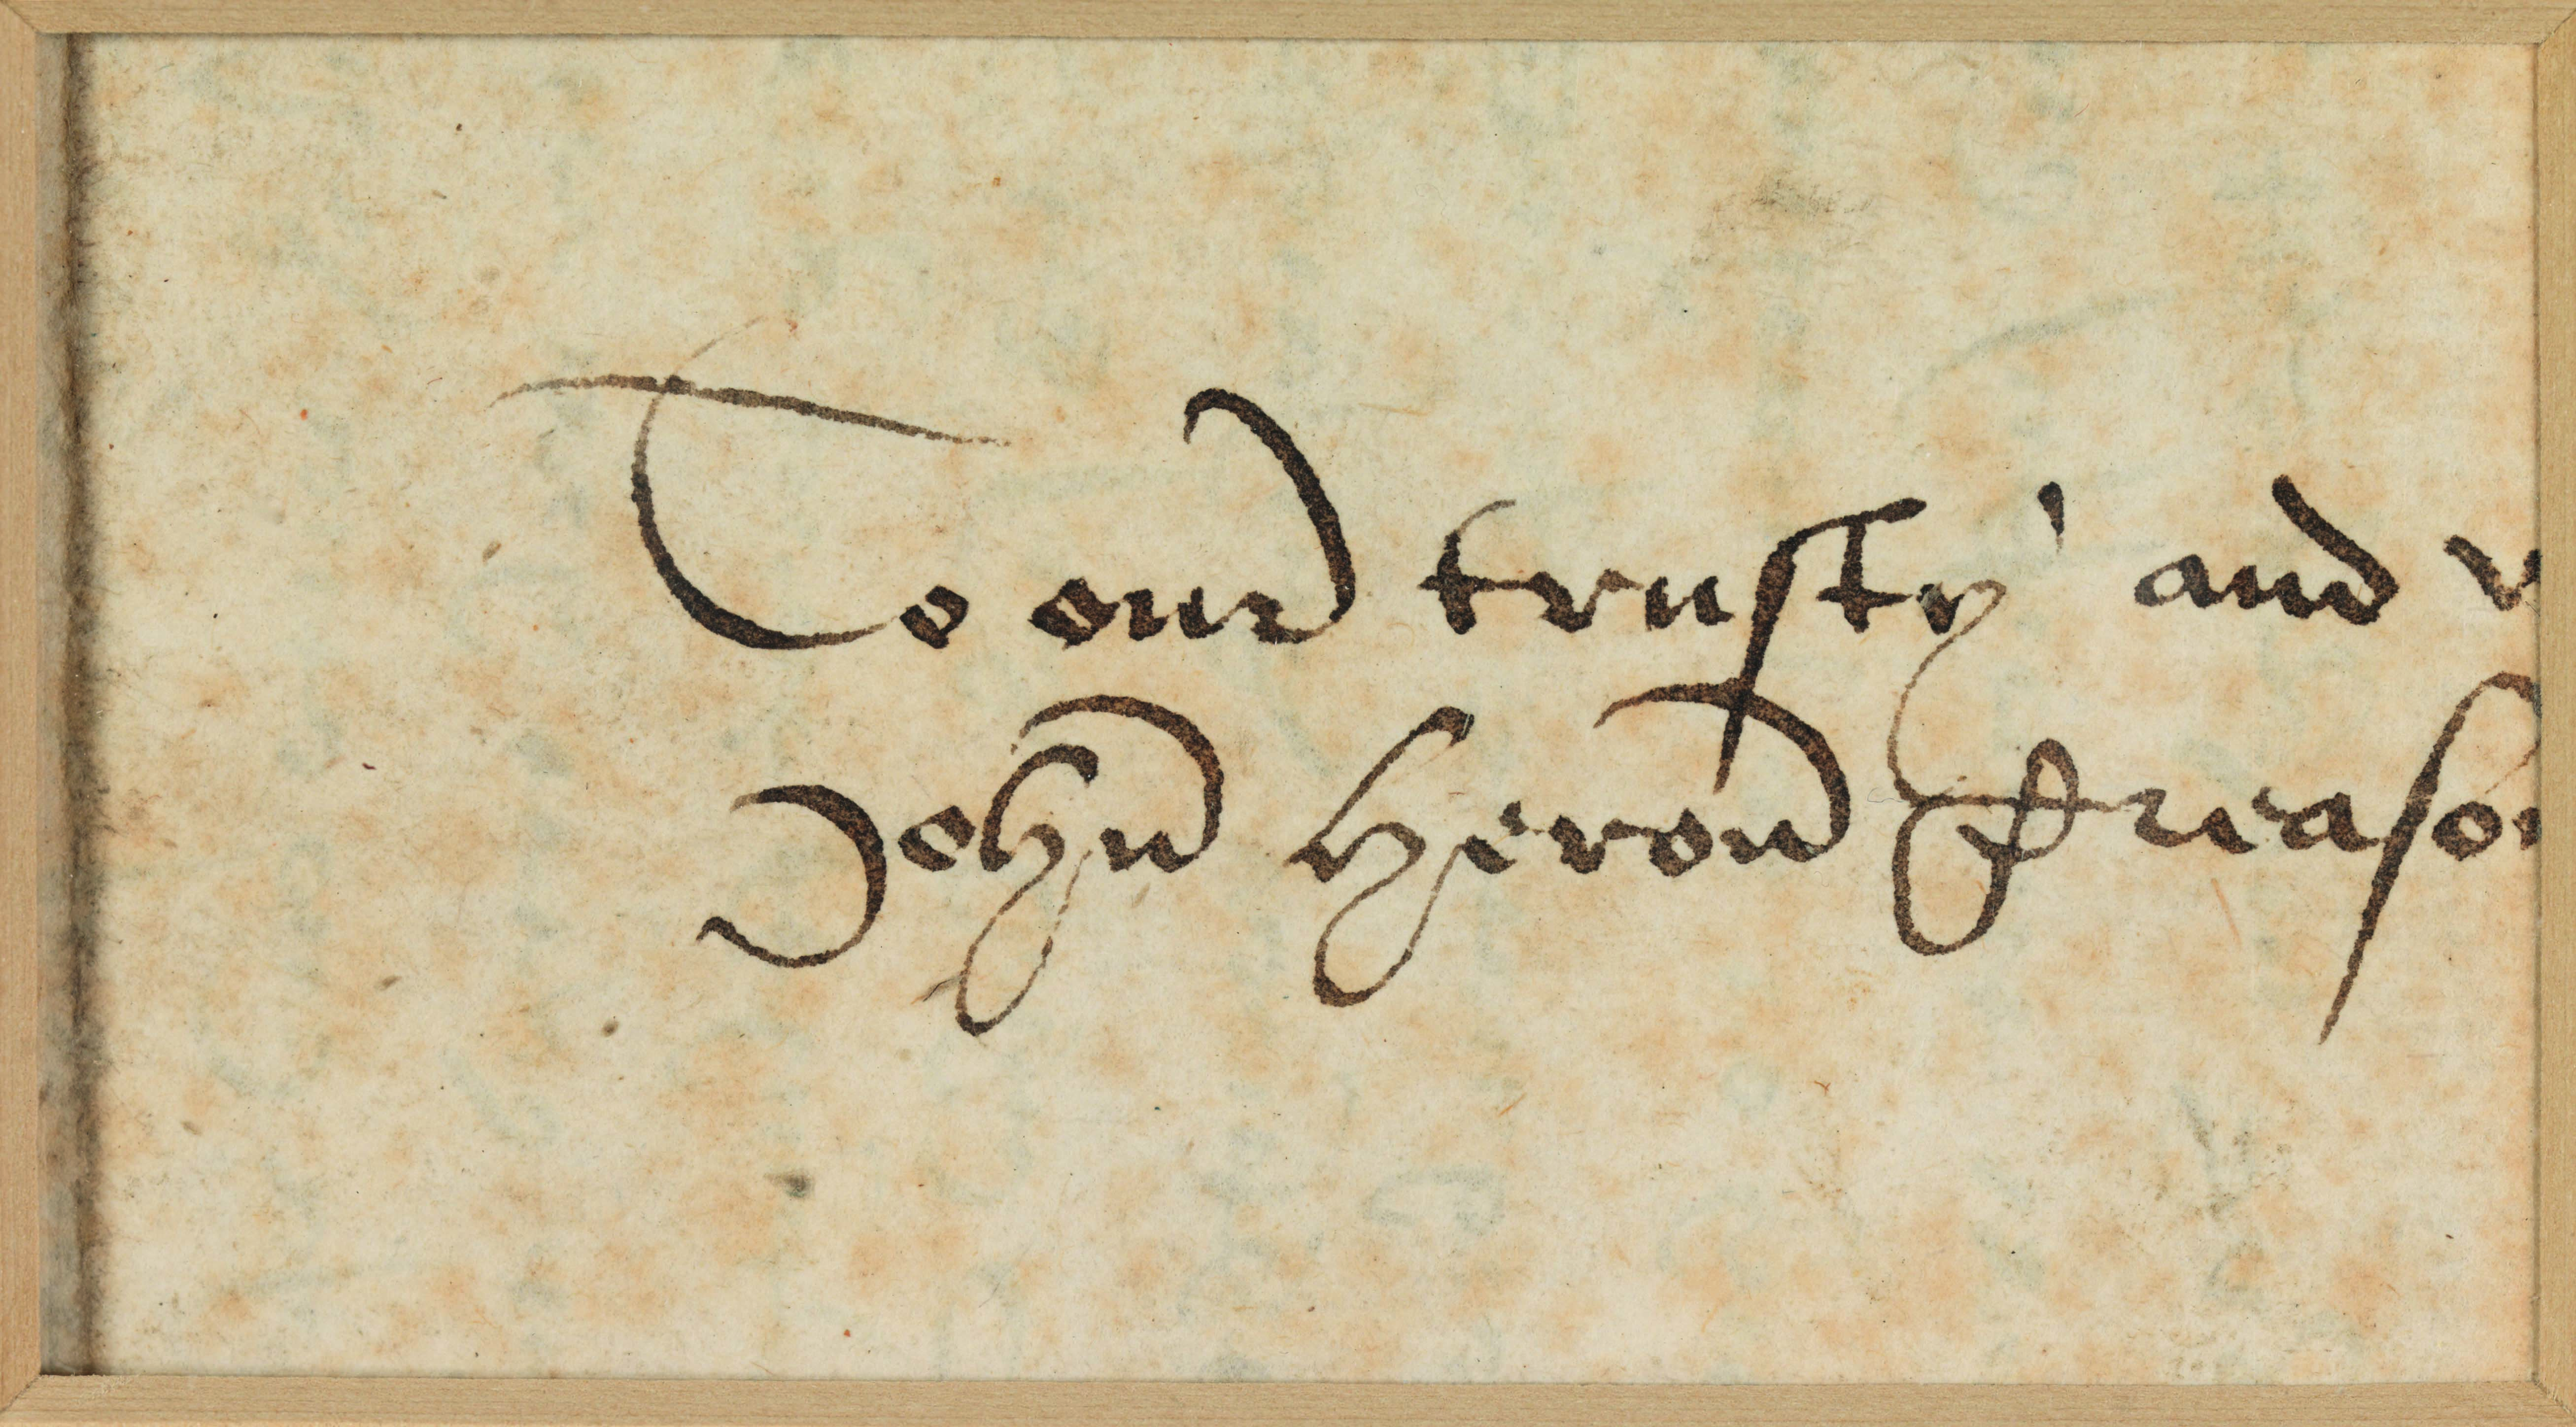 To our trusty and w
John Heron Treaso